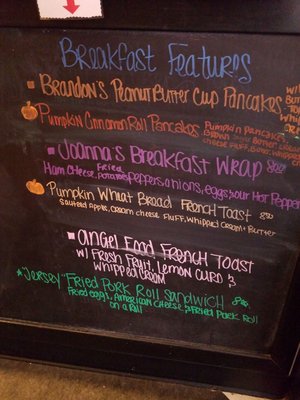 Breakfast Features
Brandon's Peanut Butter Cup Pancakes
Pumpkin Cinnamon Roll Pancakes Pumpkin Pancakes
Joanna's Breakfast Wrap
Ham, Cheese, Fried Potatoes, peppers, onions, eggs, Hot Pepper
Pumpkin Wheat Bread French Toast
Sauteed Apples, Cream cheese Fluff, Whipped Cream + Butter
Angel Food French Toast
w/ Fresh Fruit, Lemon Curd &
Whipped Cream
"Jersey" Fried Pork Roll Sandwich
Fried eggs, American Cheese, Fried Pork Roll
on a Roll